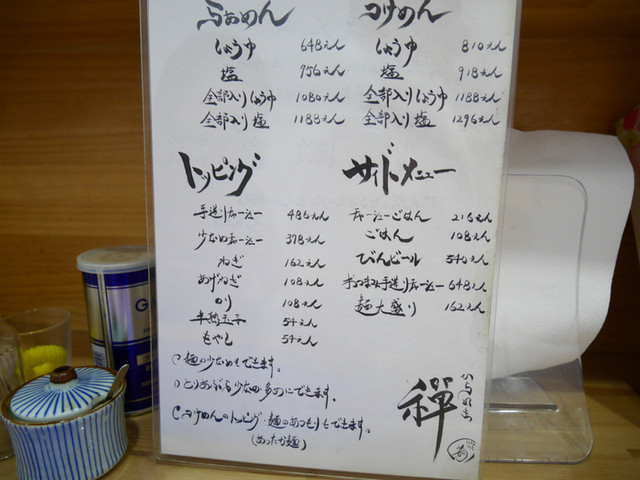 らぁめん
しょうゆ 648えん
塩 756えん
全部入りしょうゆ 1080えん
全部入り塩 1188えん
つけめん
しょうゆ 810えん
塩 918えん
全部入りしょうゆ 1188えん
全部入り塩 1296えん
トッピング
手造りチャーシュー 486えん
少なめチャーシュー 378えん
ねぎ 162えん
あげねぎ 108えん
のり 108えん
半熟玉子 54えん
もやし 54えん
サイドメニュー
チャーシューごはん 216えん
ごはん 108えん
びんビール 540えん
おつまみ手造りチャーシュー 648えん
麺大盛り 162えん
麺の少なめもできます。
あぶら少なめ多めにできます。
つけめんのトッピング・麺のあつもりもできます。
(あったか麺)
禅
G